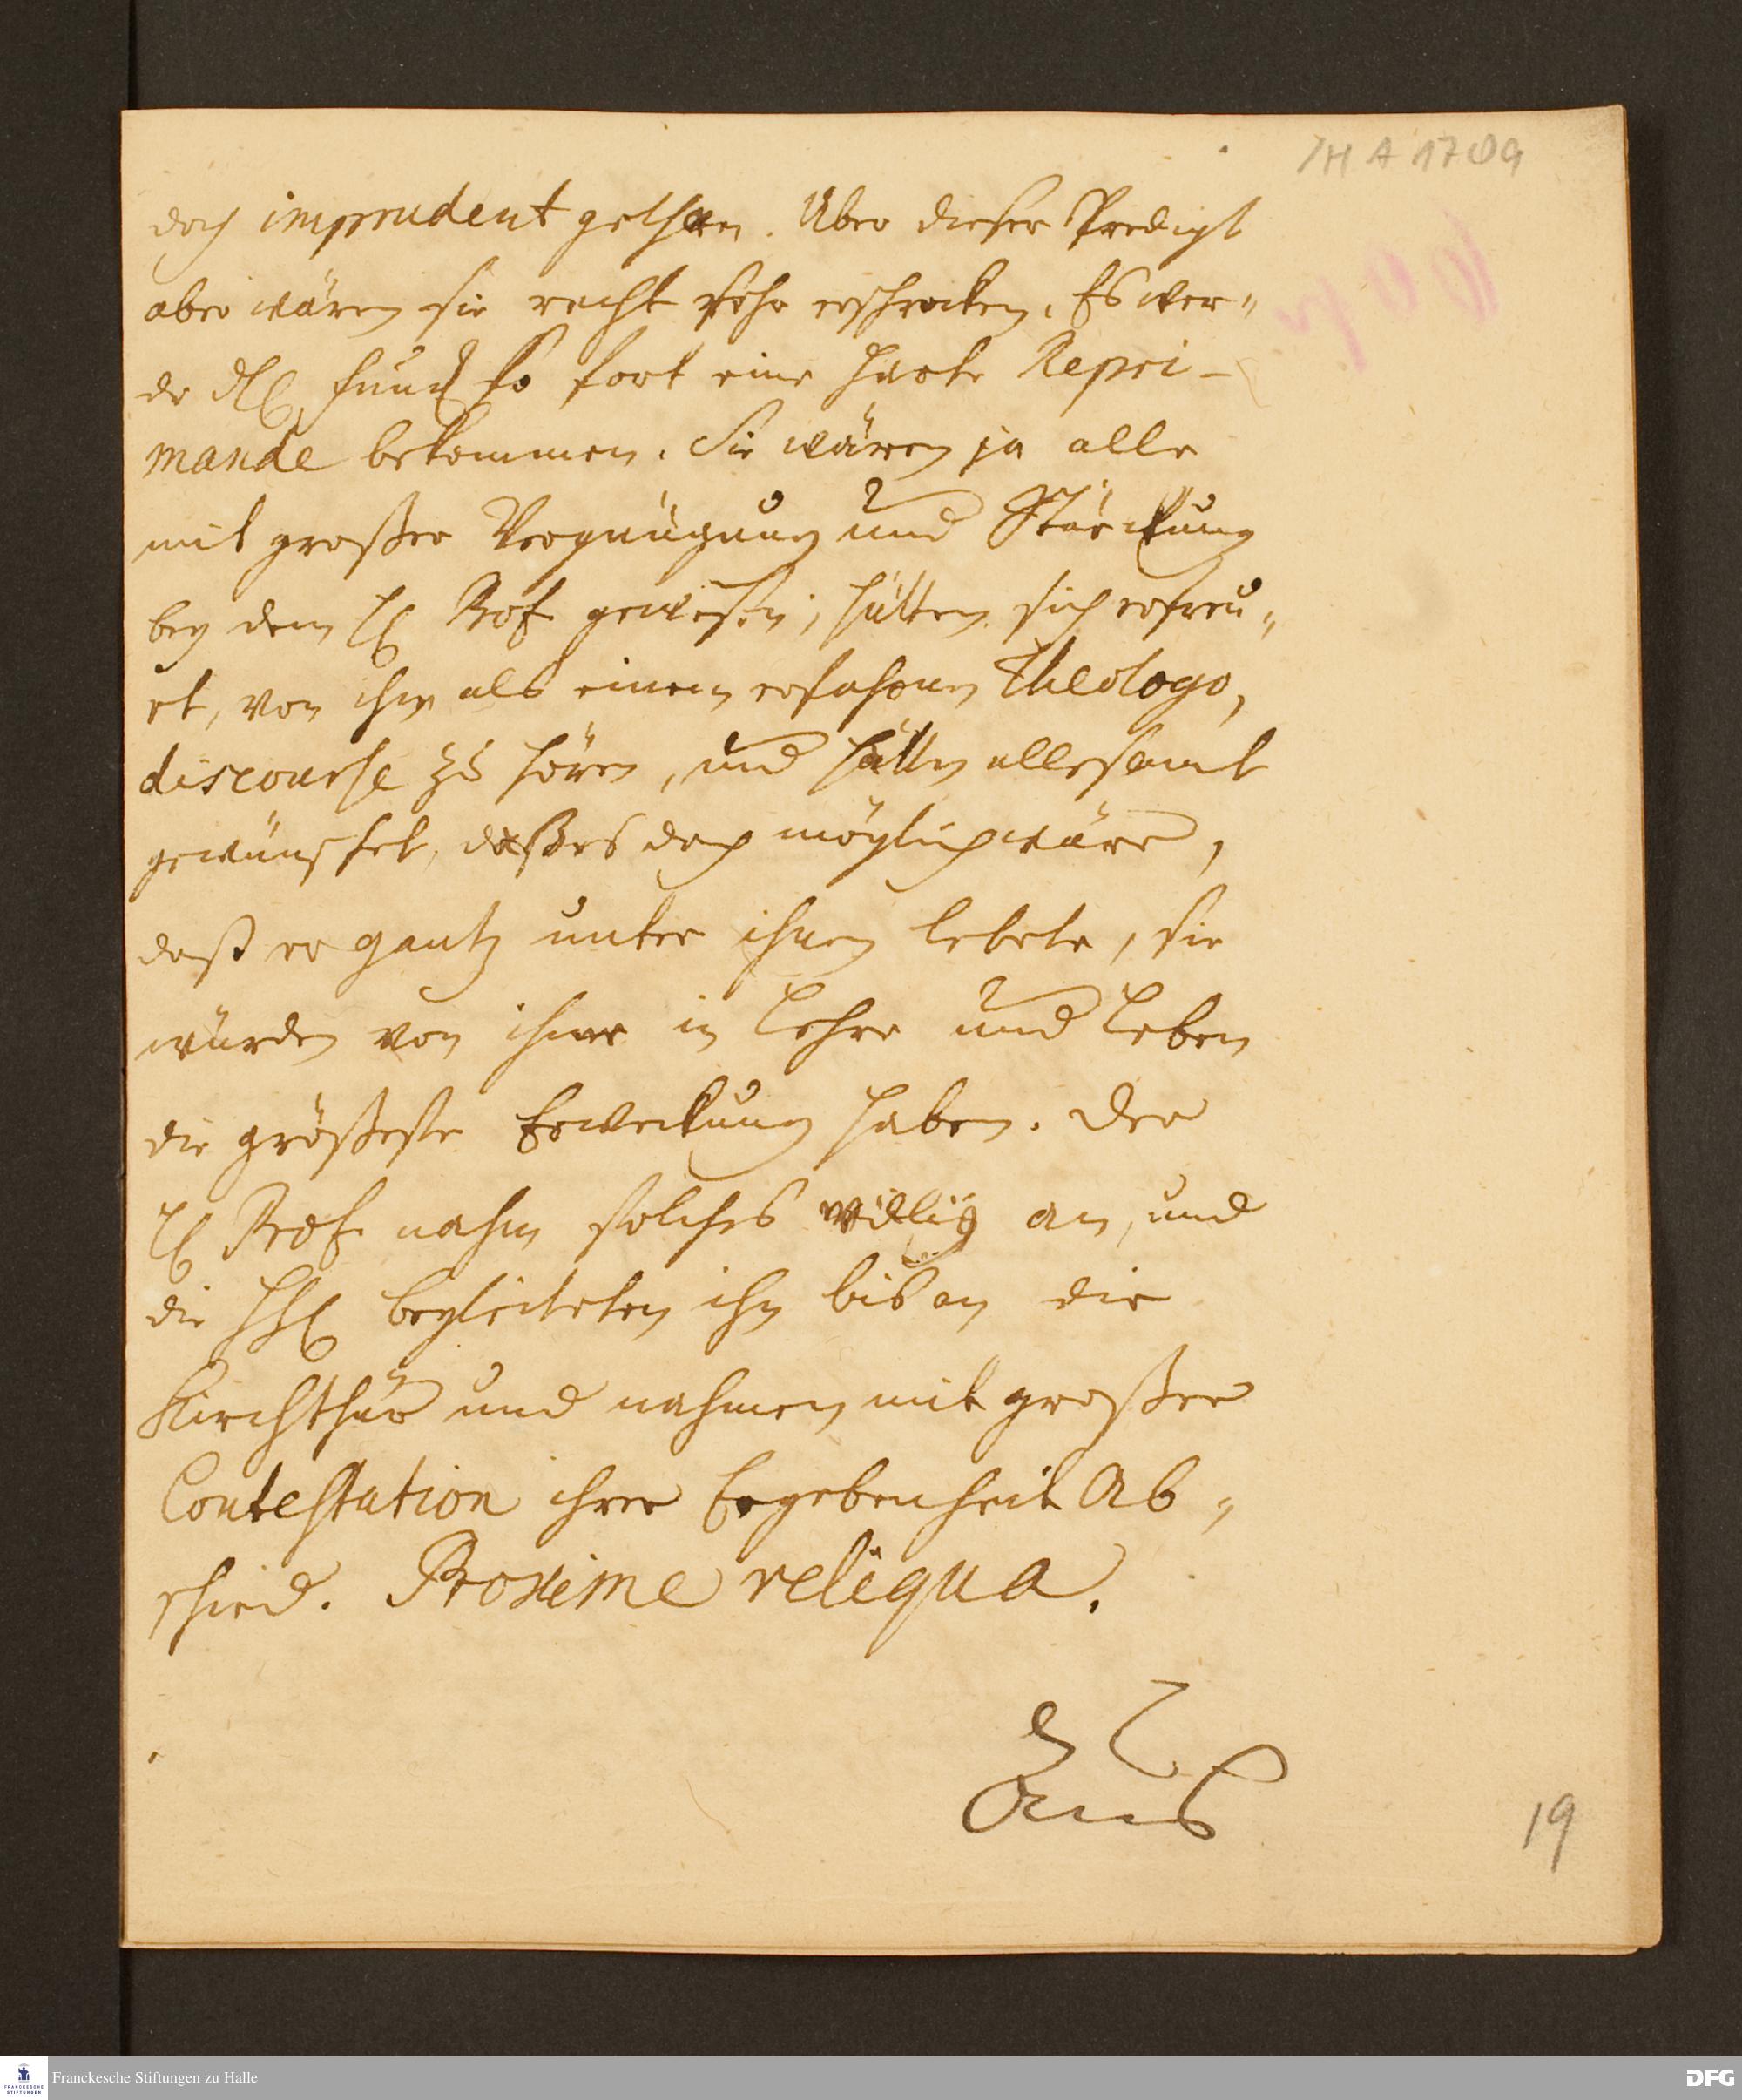 TH A 1709
doch imprudent gethan. Über dieser Predigt
aber wären sie recht sehr erschrocken. Es wer-
de H. Funck so fort eine harte Repri-
mande bekommen. Sie wären ja alle
mit großer Vergnügung und Stärckung
bey dem H. Prof. gewesen, hätten sich erfreu-
et, von ihm als einem erfahrnen Theologo,
discourse zu hören, und hätten allesamt
gewünschet, daß es doch möglich wäre,
daß er gantz unter ihnen lebete, sie
würden von ihme in Lehre und Leben
die größeste Erweckung haben. Der
H. Prof. nahm solches willig an, und
die HH. begleiteten ihn bis an die
Kirchthür und nahmen mit großer
Contestation ihrer Ergebenheit Ab-
schied. Proxime reliqua.
19
Franckesche Stiftungen zu Halle
DFG